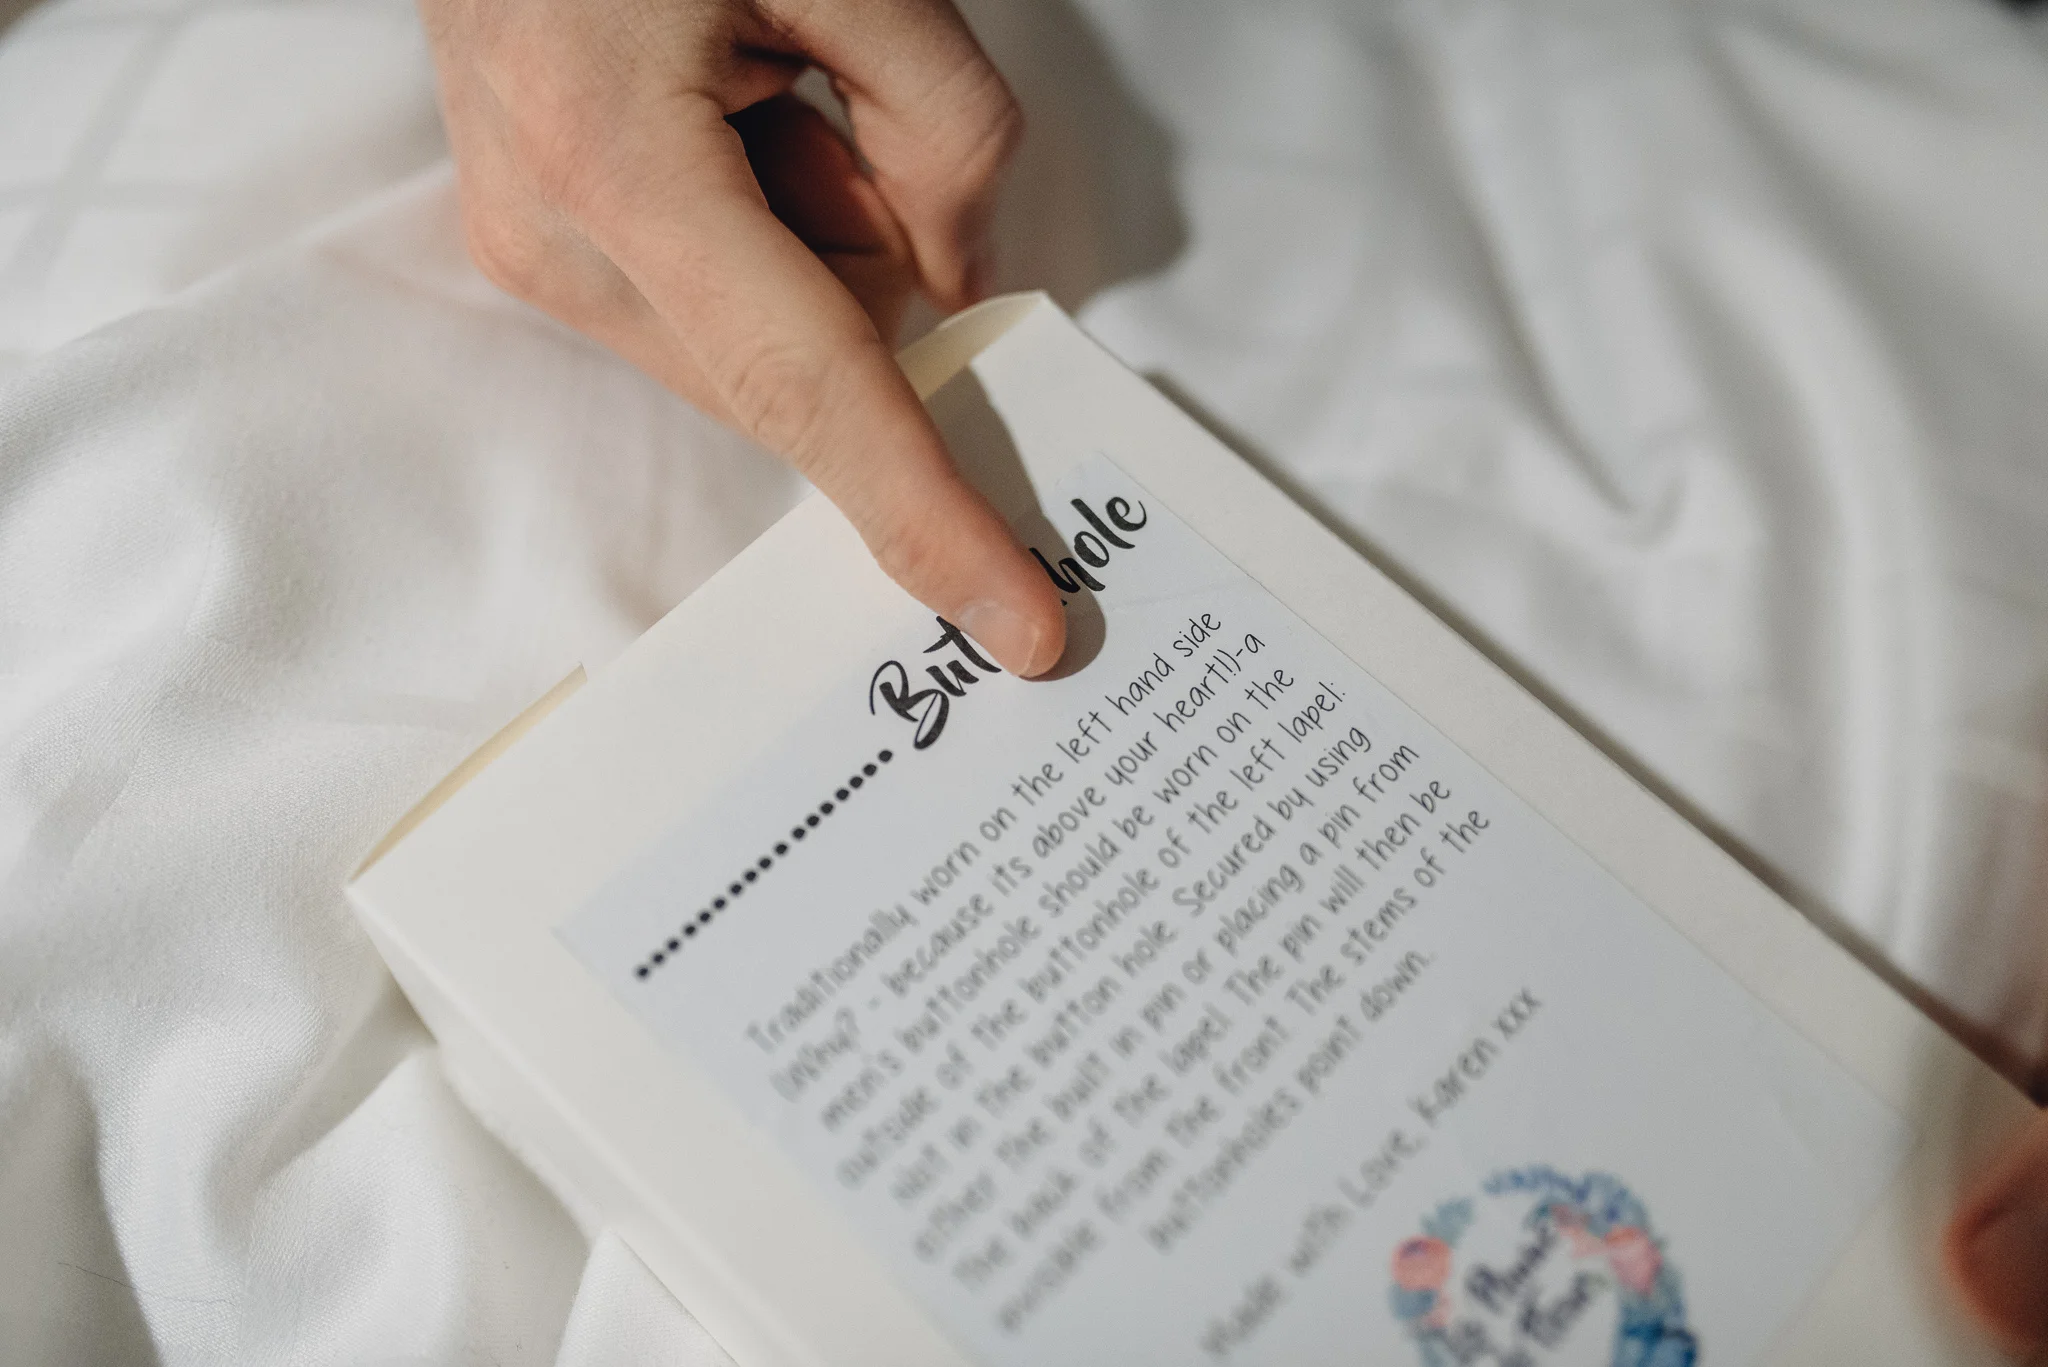 But hole
Traditionally worn on the left hand side
(why? - because its above your heart!!)-a
men's buttonhole should be worn on the
outside of the buttonhole of the left lapel:
not in the button hole. Secured by using
either the built in pin or placing a pin from
the back of the lapel. The pin will then be
invisible from the front. The stems of the
buttonholes point down.
Made with Love, Karen xxx